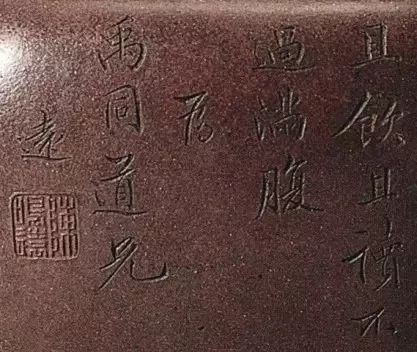 且飲且讀不
過滿腹
為
禹同道兄
遠
陳鳴遠